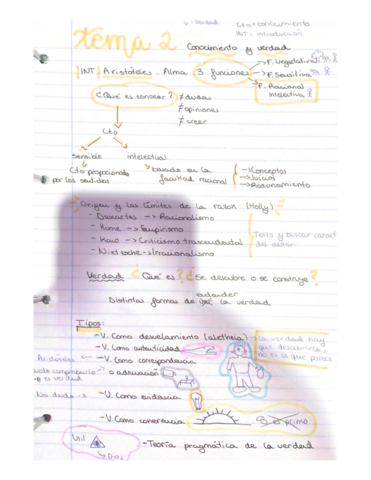 V = Verdad
Cto = conocimiento
INT = introducción
tema 2 Conocimiento y verdad
INT Aristóteles. Alma 3 funciones
F. Vegetativa
F. Sensitiva
F. Racional
Intelectiva
¿Qué es conocer?
≠ dudas
≠ opiniones
≠ creer
Cto
Sensible
intelectual
Cto proporcionado
por los sentidos
basado en la
facultad racional
→ Conceptos
→ Juicios
→ Razonamiento
- Origen y los límites de la razón. (Holly)
- Descartes → Racionalismo
- Hume → Empirismo
- Kant → Criticismo trascendental
- Nietzsche → Irracionalismo
Texto y buscar caract
del autor
Verdad ¿Qué es? ¿Se descubre o se construye?
Distintas formas de entender la verdad
Tipos:
- V. Como desvelamiento (aletheia)
la verdad hay
que descubrirla,
no es lo que parece
- V. Como autenticidad
Aristóteles ← - V. Como correspondencia
o adecuación
es verdad
No duda → - V. Como evidencia
- V. Como coherencia
primo
Util
- Teoría pragmática de la verdad
→ Dios